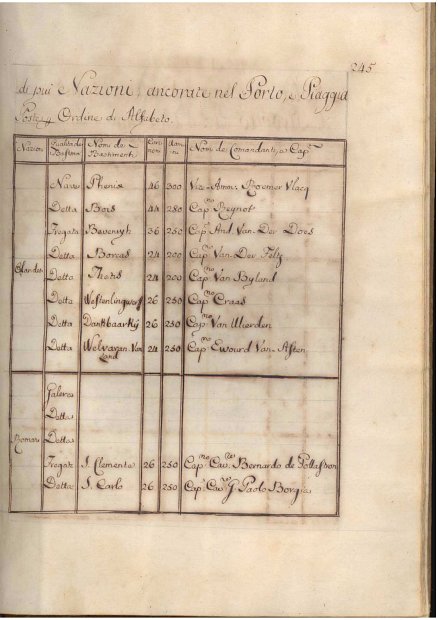 245
di più Nazioni, ancorate nel Porto, e Piaggia
Poste p Ordine di Alfabeto.
Nazion Qualità de Bastim. Nomi de Bastimenti Cannoni Uomini Nomi de Comandanti, o Capni
Nave Phenix 46 300 Vice-Ammi. Roemer Vlacq
Detta Bois 44 280 Capno Reynot
Fregata 36 250 Capno And. Van-Der Does
Detta Boreas 24 200 Capno Van-Der Feltz
Olandesi Detta Thetis 24 200 Capno Van Byland
Detta Westenlingwerf 26 250 Capno Craas
Detta Dankbaarkÿ 26 230 Capno Van Wierden
Detta Welvaren Van Land 24 250 Capno Ewourd Van-Asten
Galera
Detta
Romani Detta
Fregata S. Clemente 26 250 Capno Cavre Bernardo de
Detta S. Carlo 26 250 Capno Cavre G. Paolo Borgia